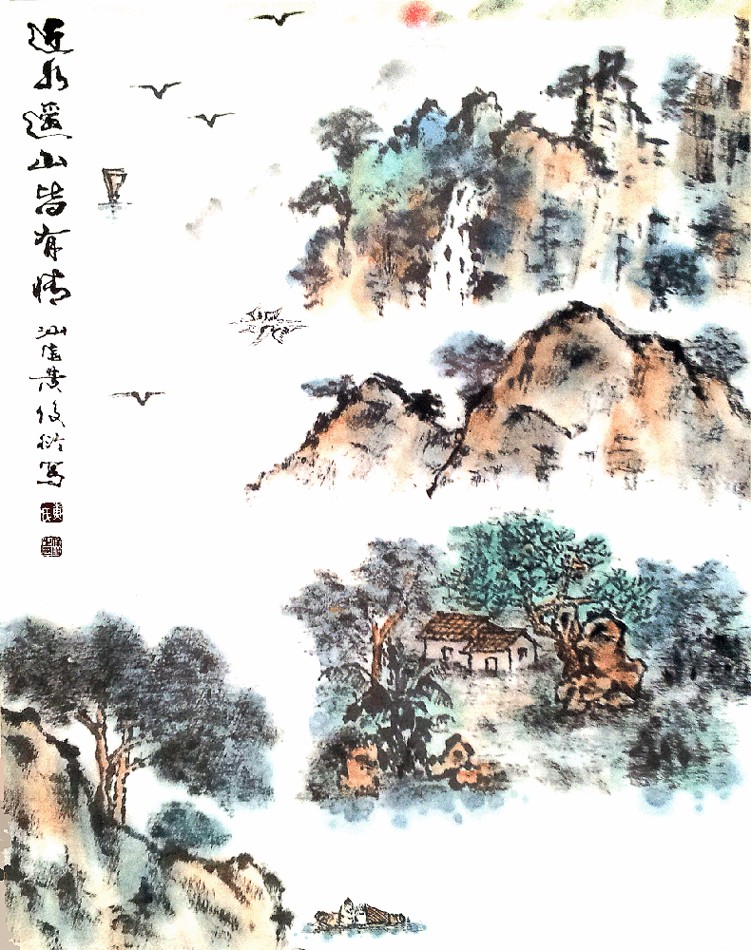 近水遥山皆有情
汕尾黄俊衍写